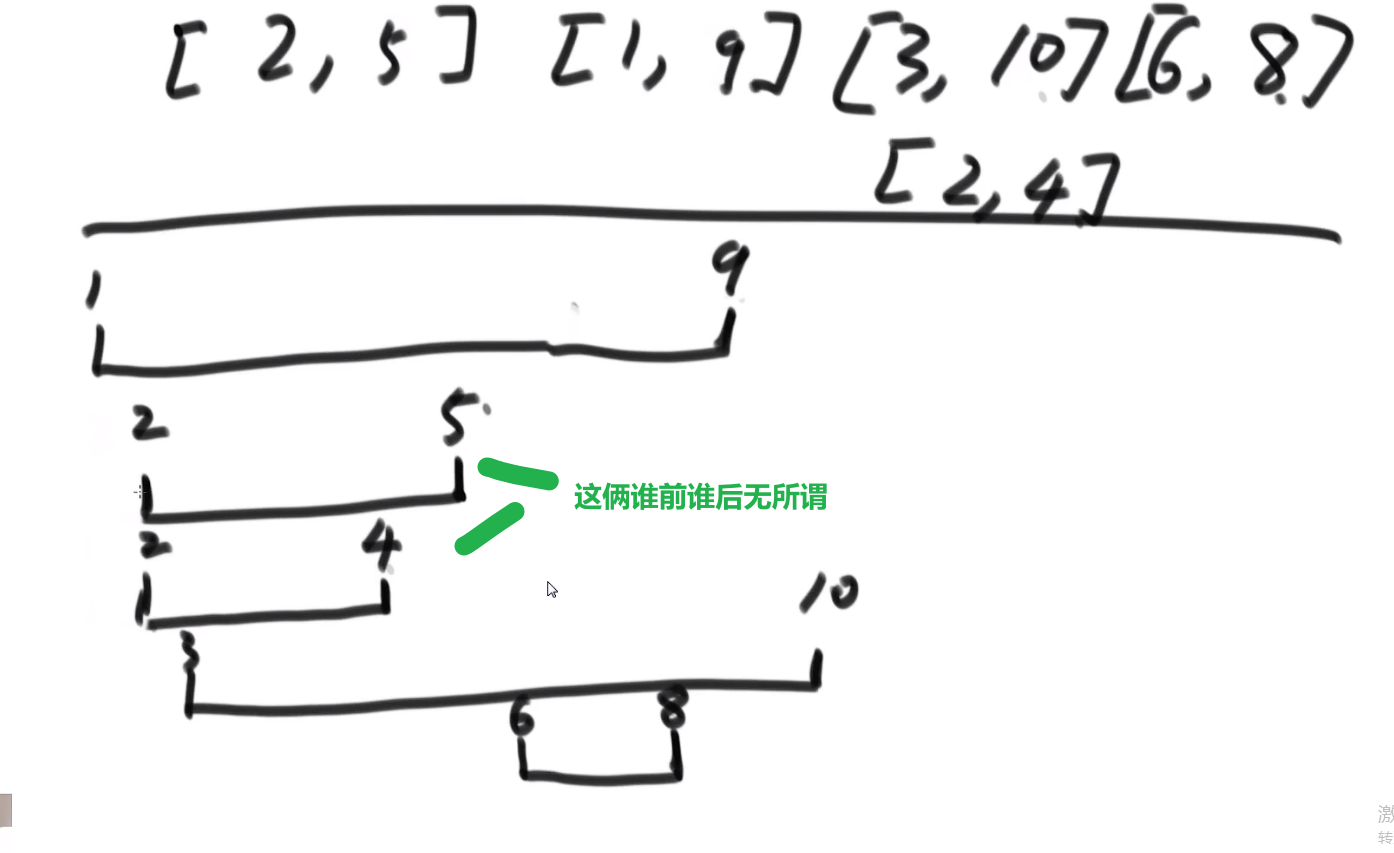 [2,5] [1,9] [3,10] [6,8]
[2,4]
1 9
2 5
这俩谁前谁后无所谓
2 4
10
3
6 8
激
转